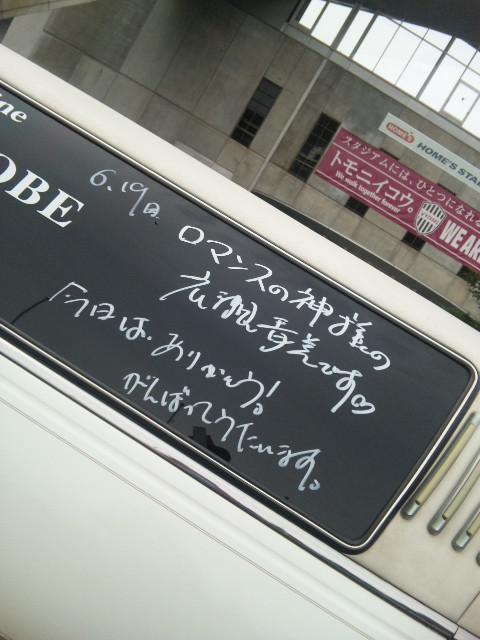 ine
OBE
6.19日
ロマンスの神様の
広瀬香美です
「今日は、ありがとう!
がんばってうたいます。
HOME'S
HOME'S STA
スタジアムには、ひとつになれる
トモニイコウ。
We walk together forever
WE AR